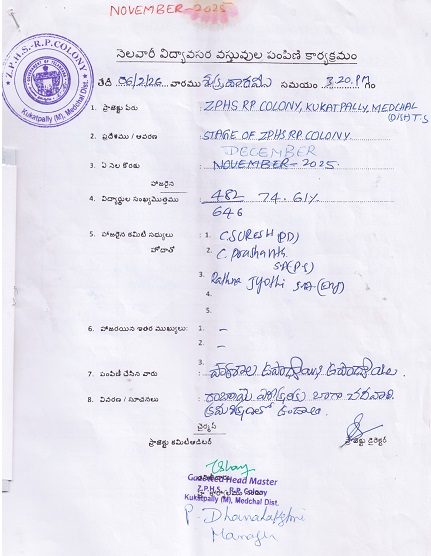 NOVEMBER-2025
Z.P.H.S.-R.P. COLONY
Kukatpally (M), Medchal Dist.
నెలవారీ విద్యావసర వస్తువుల పంపిణి కార్యక్రమం
తేదీ 06/2/26 వారము శుక్రవారము సమయం 3.20.PM గం
1. ప్రాజెక్టు పేరు : ZPHS RP COLONY, KUKATPALLY, MEDCHAL (DIST) T.S
2. ప్రదేశము / ఆవరణ : STAGE OF ZPHS RP COLONY
DECEMBER
3. ఏ నెల కొరకు : NOVEMBER-2025.
హాజరైన
4. విద్యార్థుల సంఖ్య/మొత్తము : 482/646 74.61%
5. హాజరైన కమిటి సభ్యులు : 1. C.SURESH (PD)
హోదాతో 2. C. Prashanth SA(P.S)
3. Rathna Jyothi S.A.(Eng)
4.
5.
6. హాజరయిన ఇతర ముఖ్యులు: 1. –
2. –
3.
7. పంపిణి చేసిన వారు : పాఠశాల ఉపాధ్యాయిని ఉపాధ్యాయులు.
8. వివరణ / సూచనలు : రాబోయే పరీక్షలకు బాగా చదవాలి
క్రమశిక్షణతో ఉండాలి.
చైర్మన్
ప్రాజెక్టు కమిటి/లీడర్ ప్రాజెక్టు డైరెక్టర్
Gazetted Head Master
Z.P.H.S., R.P. Colony
Kukatpally (M), Medchal Dist.
P. Dhanalakshmi
Manager